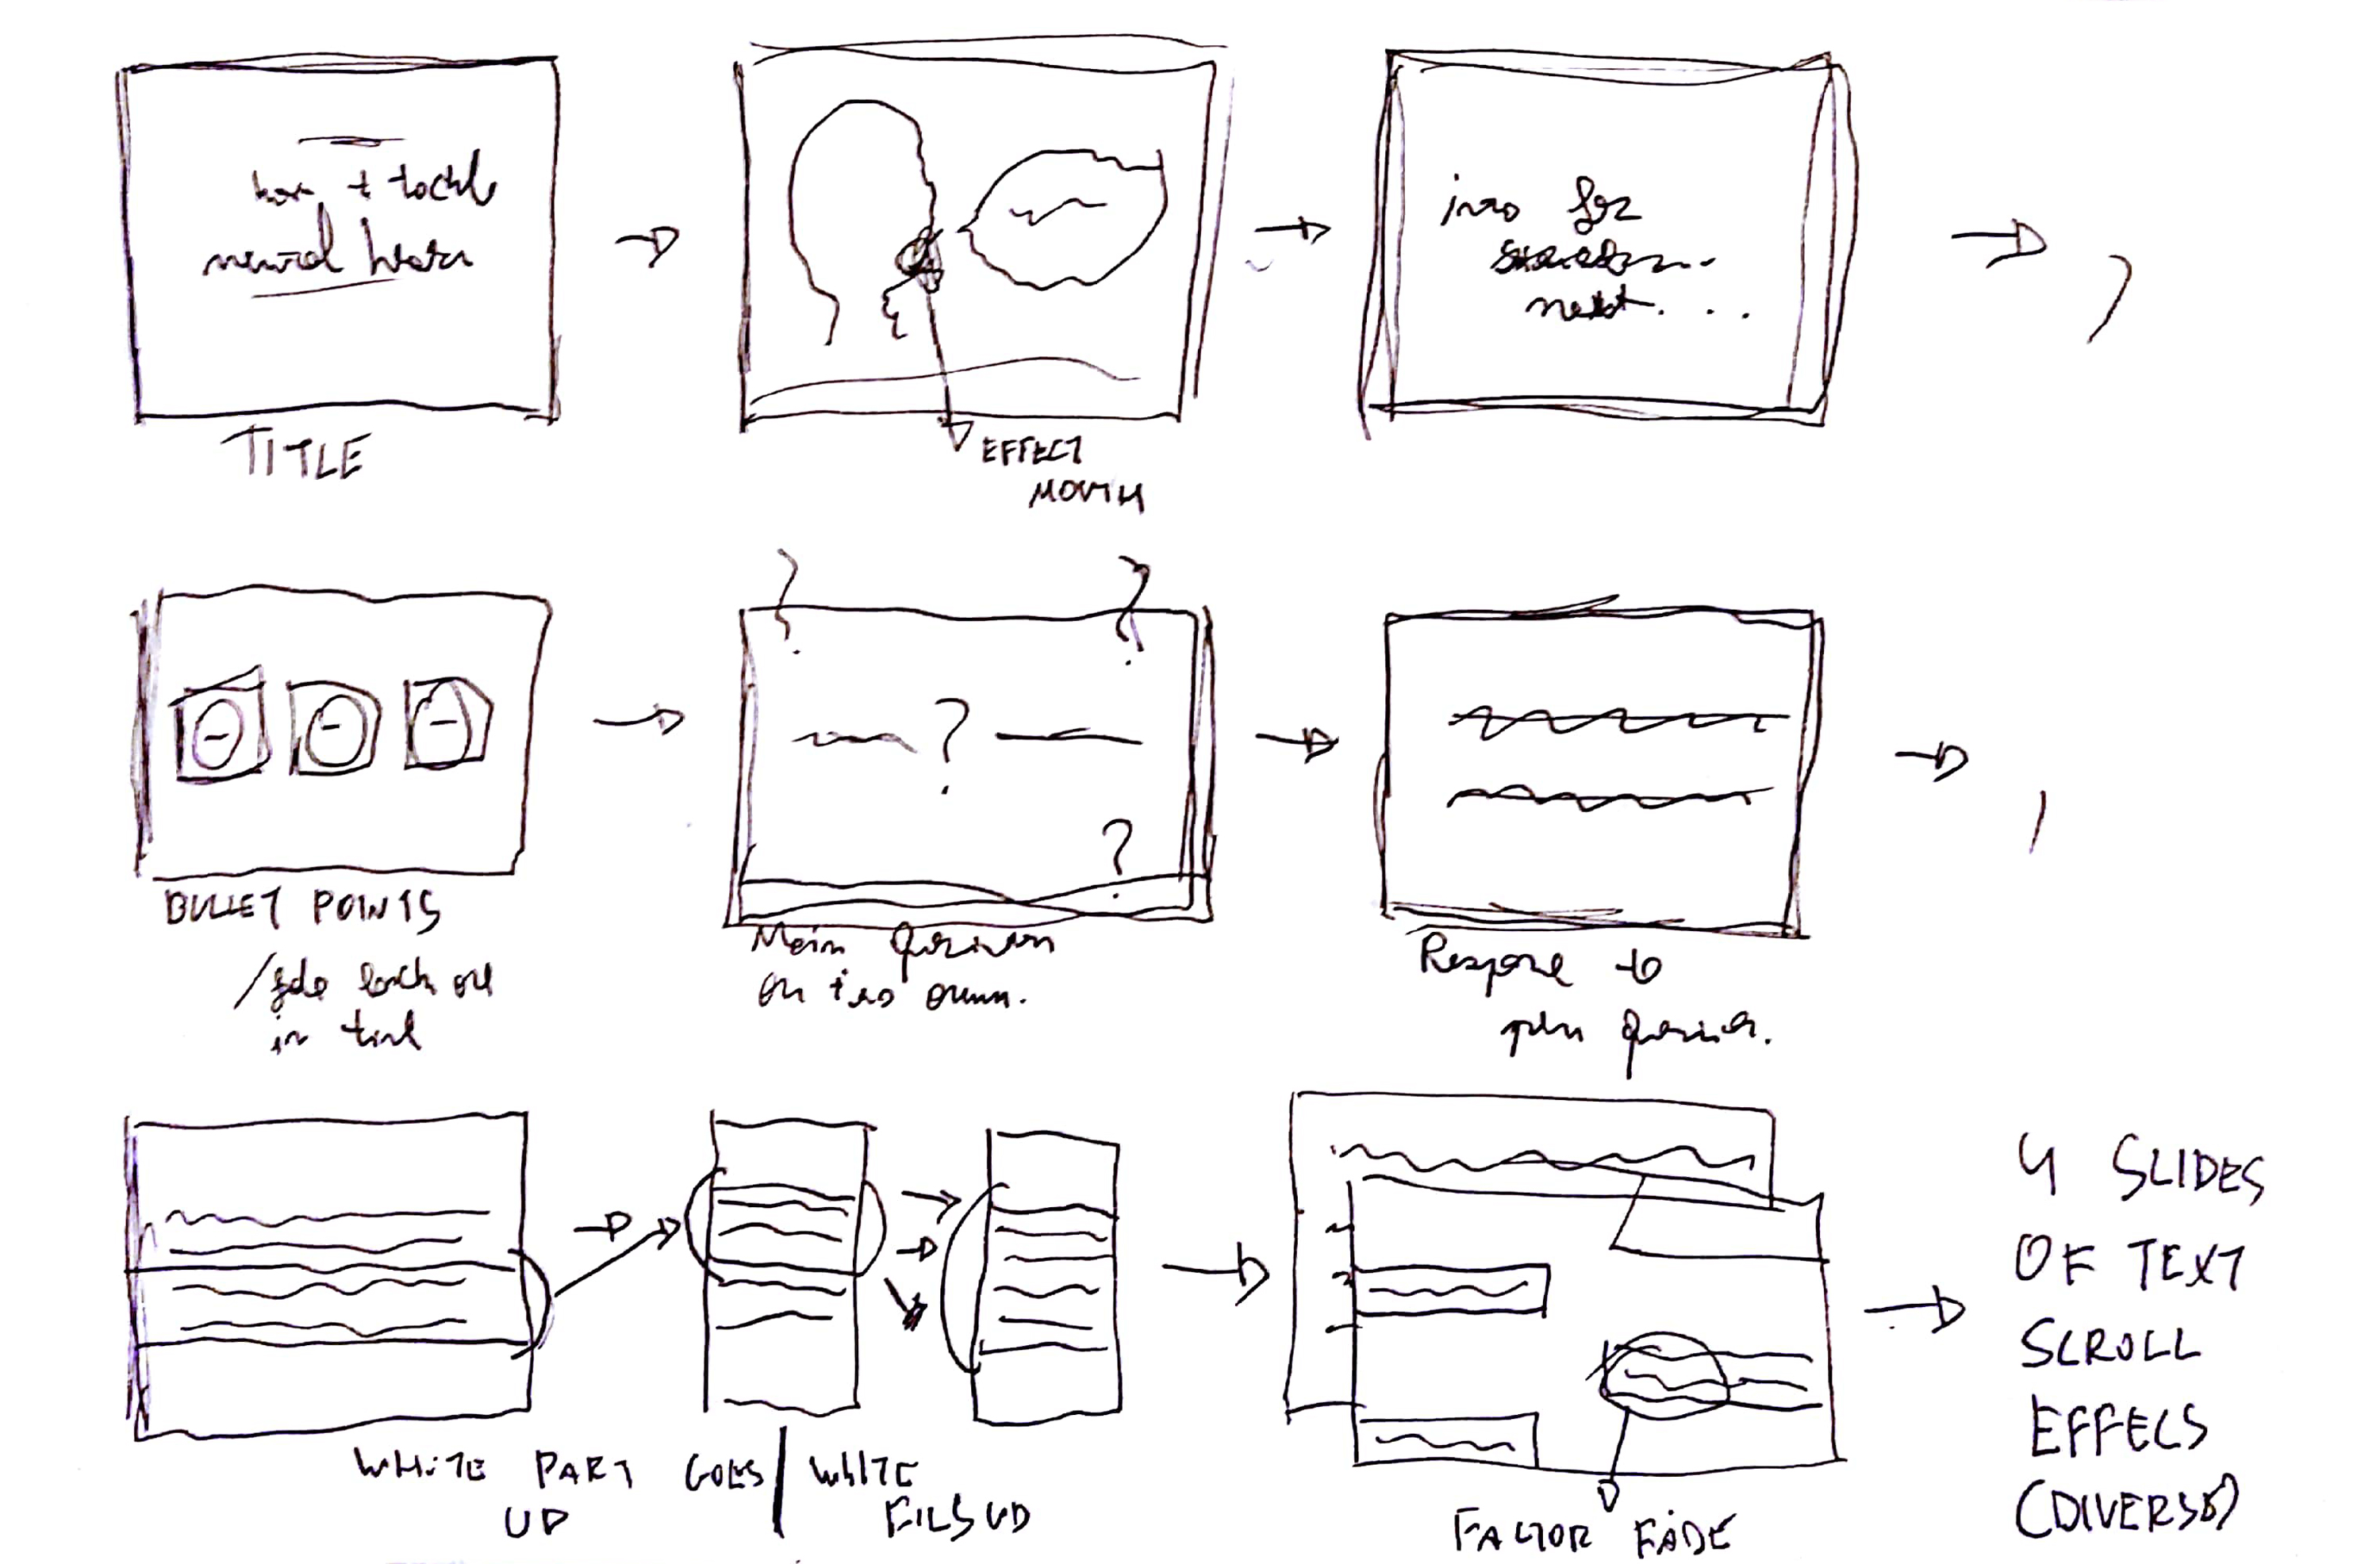 how t tackle
mental health
TITLE
EFFECT
MOUTH
intro for
next...
BULLET POINTS
/ fade each one
in time
?
?
?
?
Main Question
on two
Response to
Question.
WHITE PART GOES / WHITE
UP
FILLS UP
FACTOR FADE
4 SLIDES
OF TEXT
SCROLL
EFFECS
(DIVERSO)